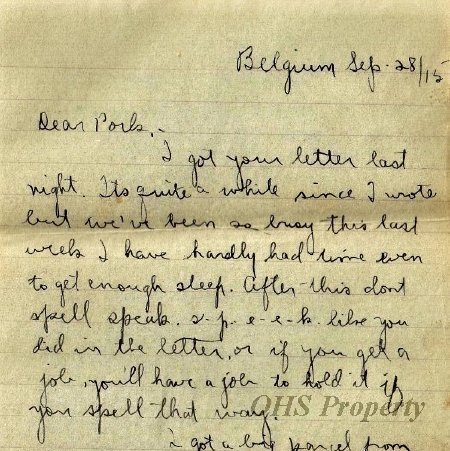 Belgium Sep. 28/15
Dear Pork,-
I got your letter last
night. Its quite a while since I wrote
but we've been so busy this last
week I have hardly had time even
to get enough sleep. After this dont
spell speak. s-p-e-e-k. like you
did in the letter, or if you get a
job, you'll have a job to hold it if
you spell that way.
QHS Property
I got a big parcel from